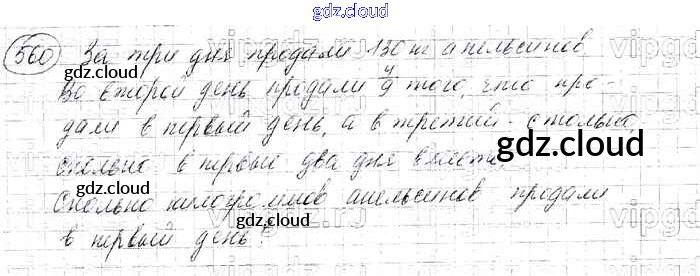 gdz.cloud
560 За три дня продали 130 кг апельсинов
gdz.cloud
Во второй день продали 4/9 того, что про-
дали в первый день, а в третий - столько,
gdz.cloud
сколько в первые два дня вместе.
gdz.cloud
Сколько килограммов апельсинов продали
gdz.cloud
в первый день?